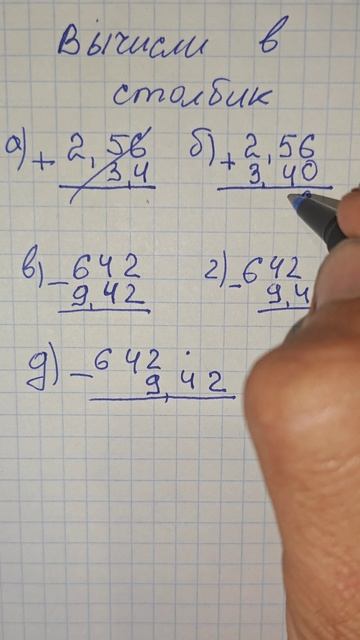 Вычисли в
столбик
а) + 2,56 б) + 2,56
3,4 3,40
в) - 642 г) - 642
9,42 9,4
д) - 642
9,42